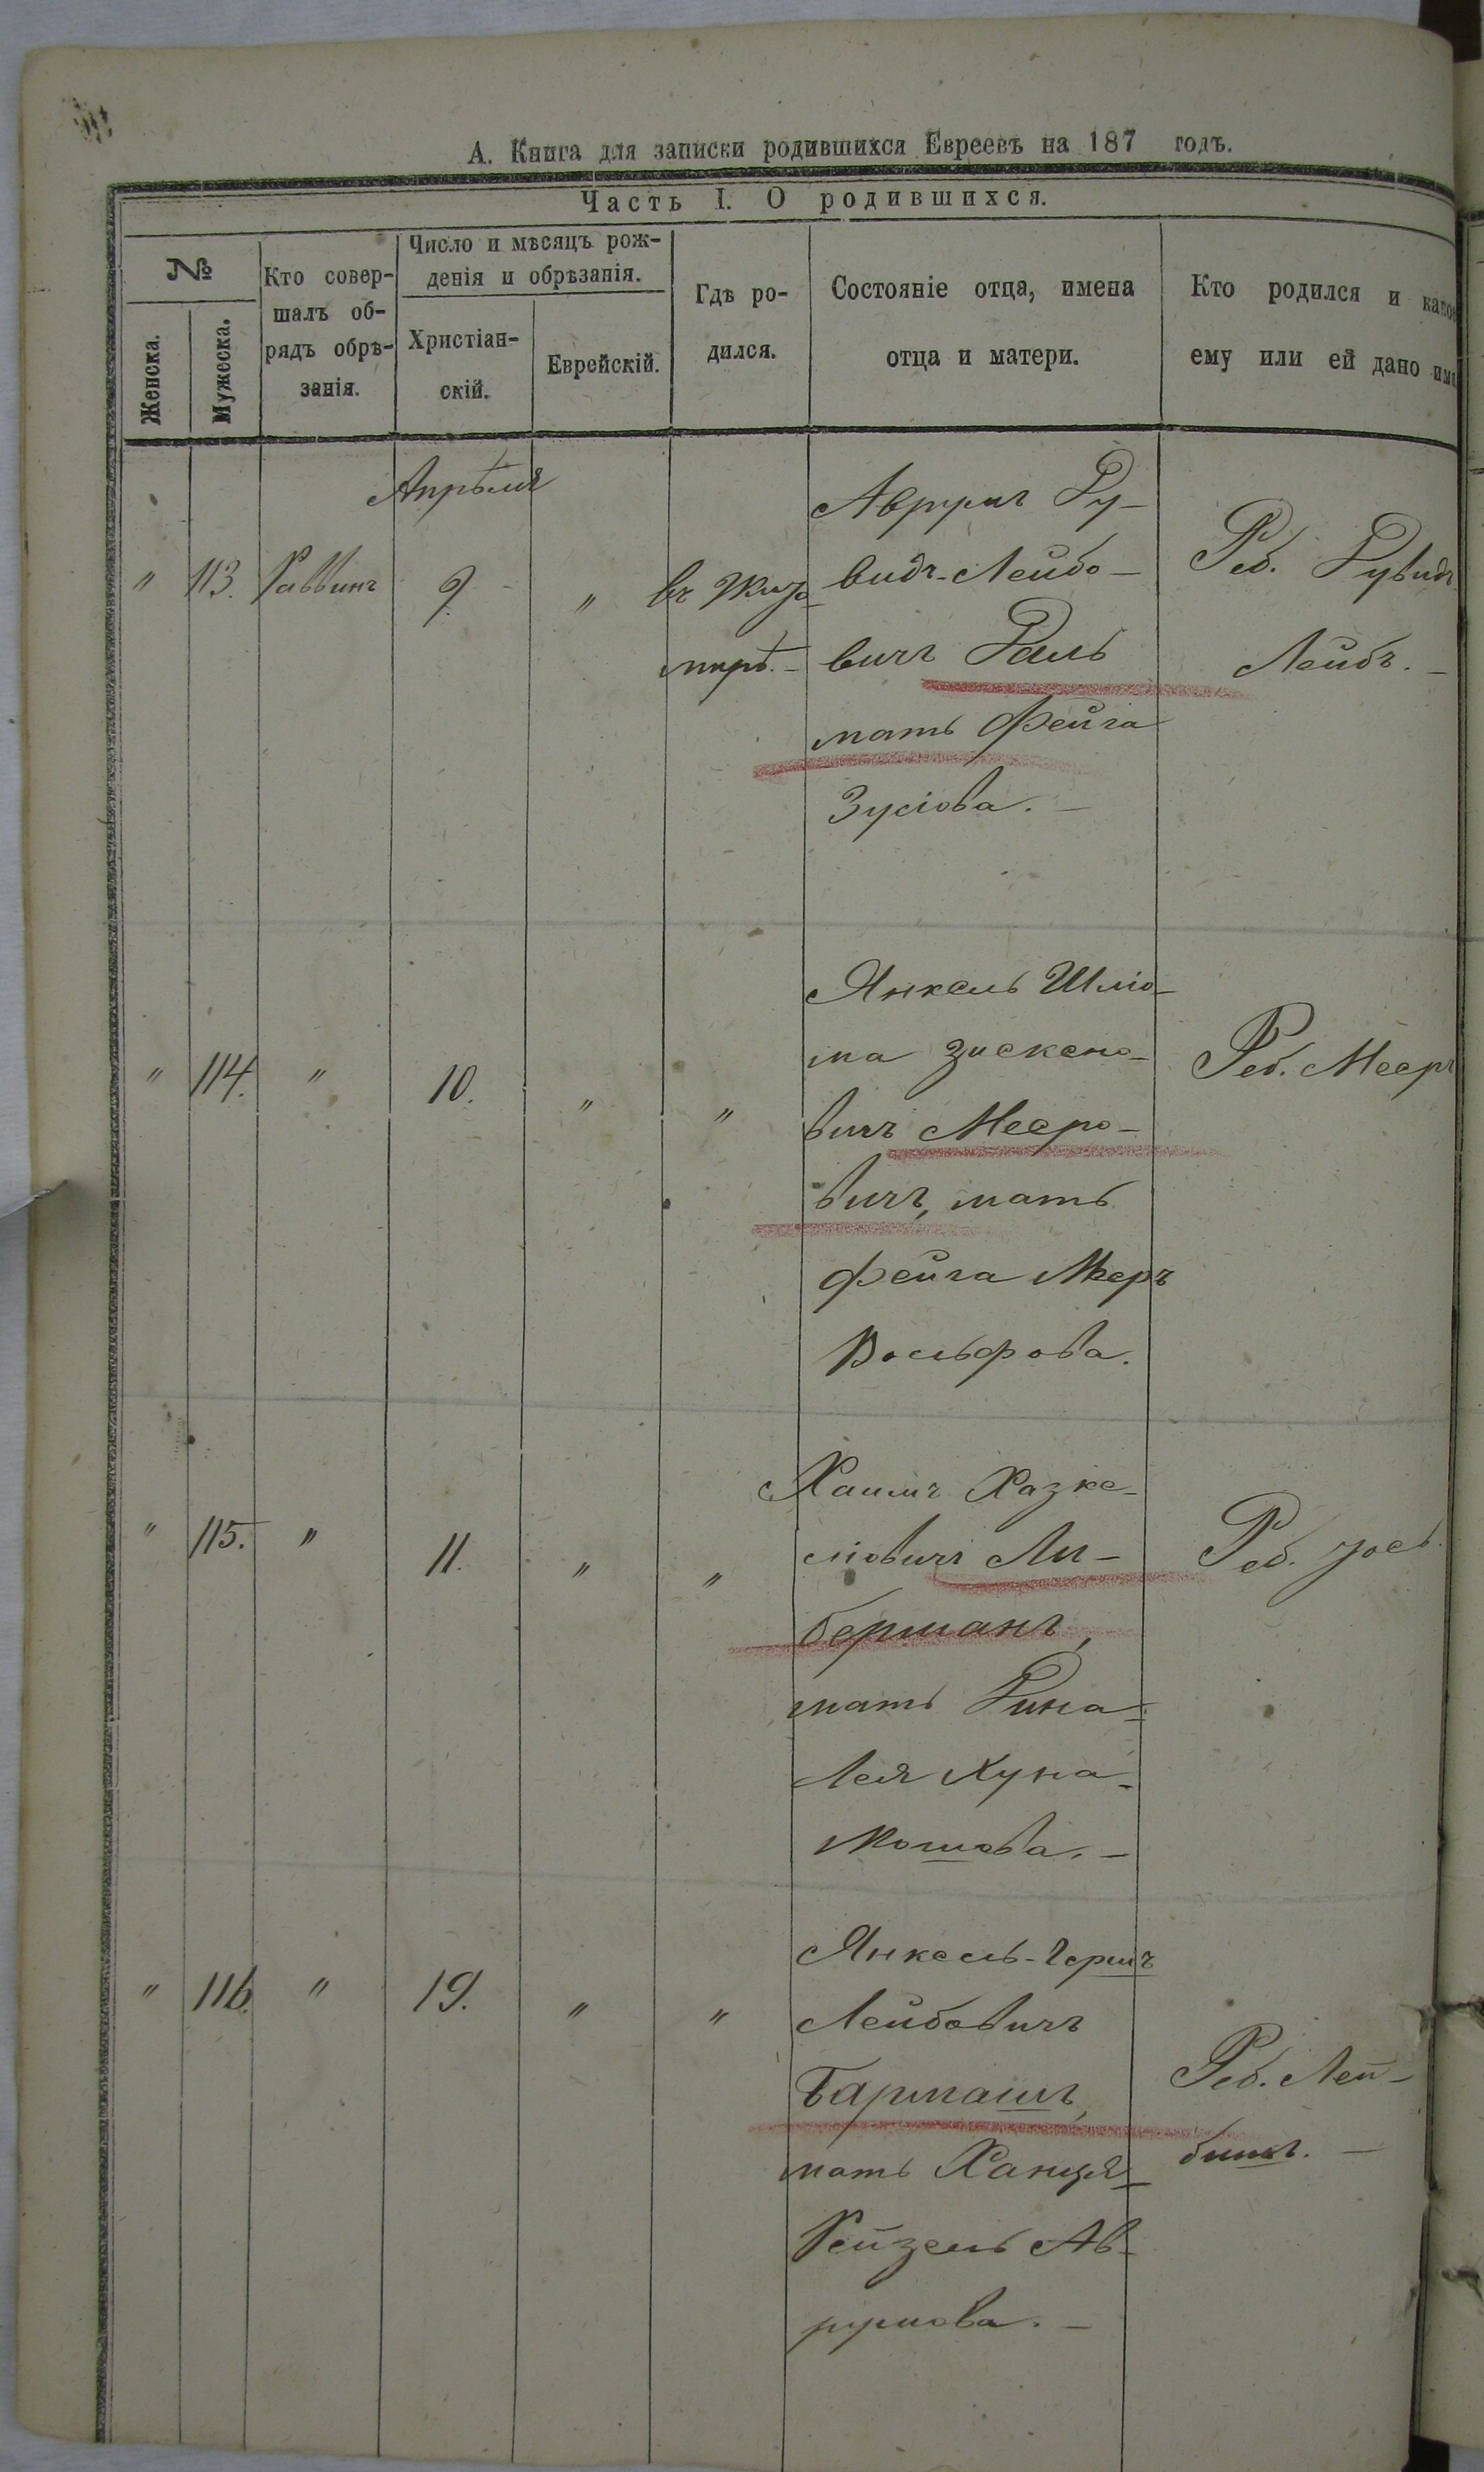 А. Книга для записки родившихся Евреевъ на 187 годъ.
Часть I. О родившихся.
№
Женска.
Мужеска.
Кто совер-
шалъ об-
рядъ обрѣ-
занія.
Число и мѣсяцъ рож-
денія и обрѣзанія.
Христіан-
скій.
Еврейскій.
Гдѣ ро-
дился.
Состояніе отца, имена
отца и матери.
Кто родился и какое
ему или ей дано имя
Апрѣля
" 113. Раввинъ 9. "
въ Жито-
мирѣ. -
Ду-
видъ-Лейбо-
вичъ Даль
мать Фейга
Зусіова. -
Реб. Дувидъ
Лейбъ. -
" 114. " 10. " "
Янкель Шліо-
ма Зискено-
вичъ Мееро-
вичъ, мать
Фейга Меръ
Вольфова.
Реб. Мееръ
" 115. " 11. " "
Хаимъ Хазке-
ліовичъ Ли-
берманъ,
мать Дина-
Лея Хуна-
Мошова. -
Реб. Іось.
" 116. " 19. " "
Янкель-Гершъ
Лейбовичъ
Бармашъ,
мать Ханця-
Рейзель Ав-
румова. -
Реб. Лей-
бишъ. -